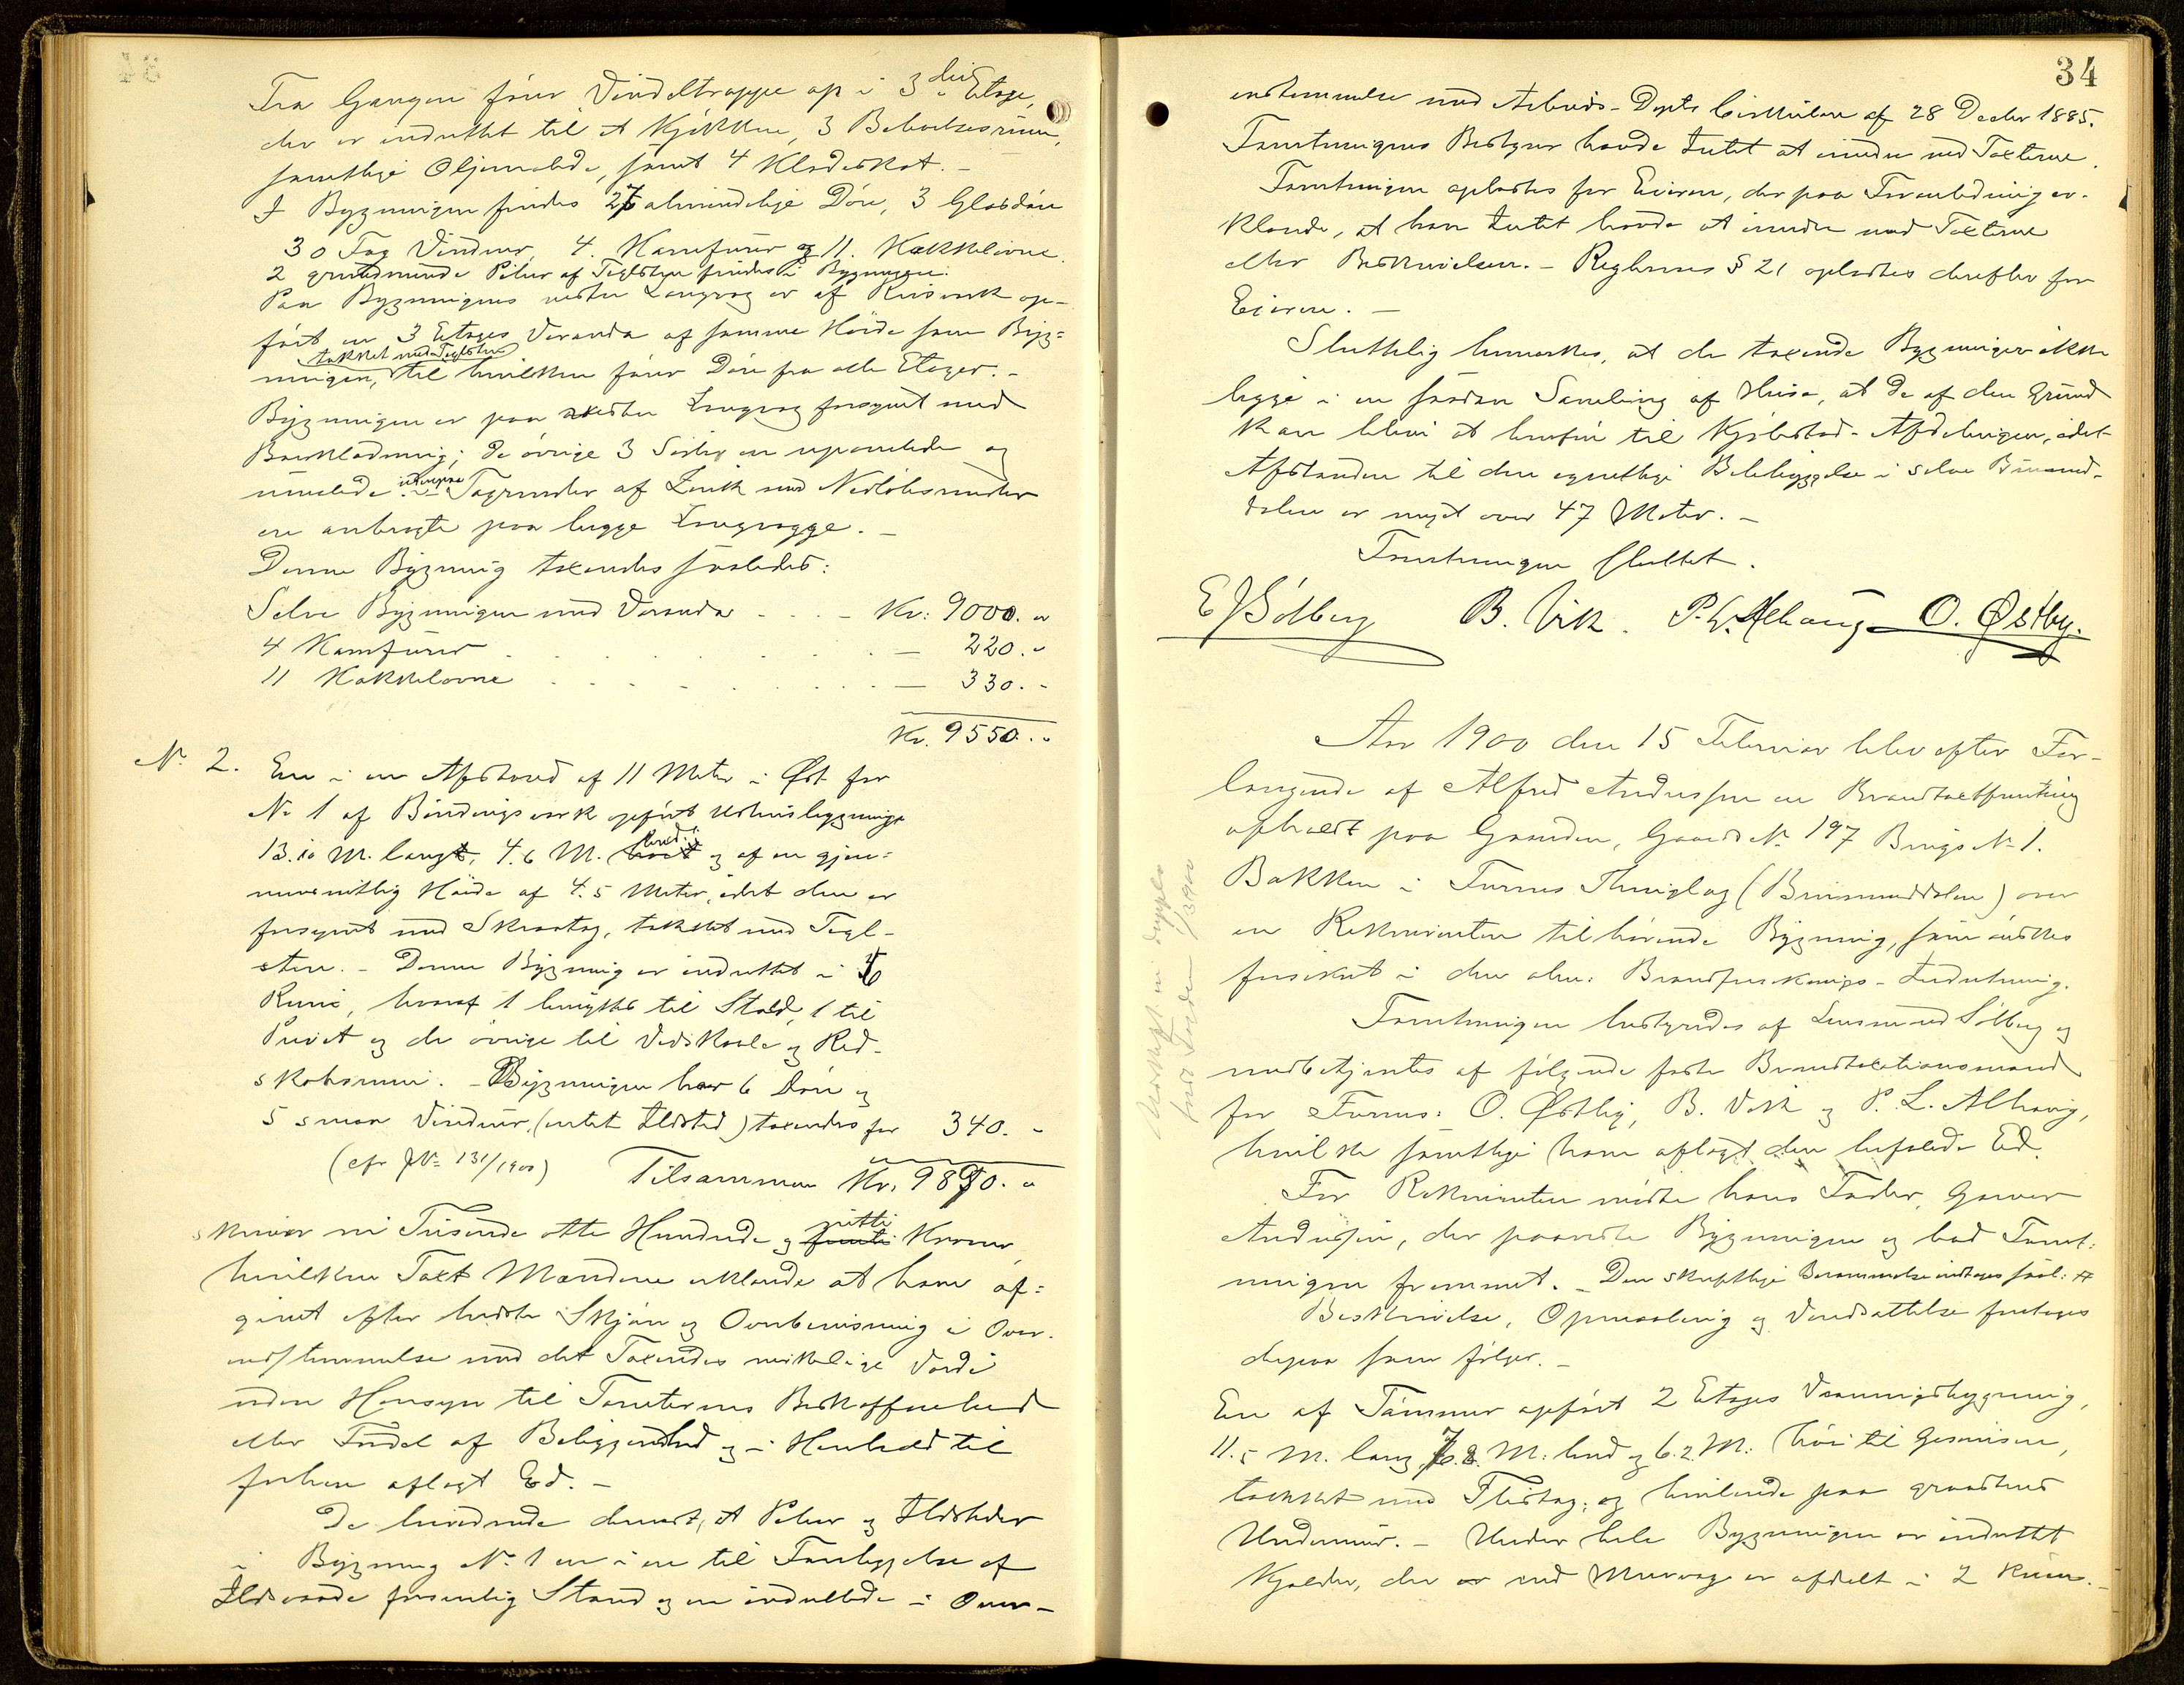 Fra Gangen fører Vindeltrappe op i 3die Etage,
der er indrettet til et Kjøkken, 3 Beboelsesrum,
samtlige Oljemalede, samt 4 Klædeskot. -
I Bygningen findes 27 almindelige Døre, 3 Glasdøre
30 Fag Vinduer, 4. Komfurer og 11. Kakkelovne.
2 grundmurede Piber af Teglsten findes i Bygningen.
Paa Bygningens vestre Langvæg er af Reisverk op-
ført en 3 Etages Veranda af samme Høide som Byg=
takket med Teglsten
ningen, til hvilken fører Døre fra alle Etager. -
Bygningen er paa vestre Langvæg forsynet med
Bordklædning; de øvrige 3 Sider er upanelede og
umalede. Tagrender af Zink med Nedløbsrender
ere anbragte paa begge Langvægge. -
Denne Bygning taxeredes saaledes:
Selve Bygningen med Veranda - - - Kr: 9000. "
4 Komfurer - 220. "
11 Kakkelovne - 330. "
Kr. 9550. "
No 2. En i en Afstand af 11 Meter i Øst for
No 1 af Bindingsverk opført Udhusbygning
13.10 M. lang, 4.6 M. bred og af en gjen=
nemsnitlig Høide af 4.5 Meter, idet den er
forsynet med Skraatag, takket med Tegl-
sten. - Denne Bygning er indrettet i
Rum, hvoraf 1 benyttes til Stald, 1 til
Privet og de øvrige til Vedskaale og Red-
skabsrum. - Bygningen har 6 Døre og
5 smaa Vinduer, (intet Ildsted) taxeredes for 340. "
(cfr JNo 131/1900) Tilsammen Kr. 9890. "
skriver ni Tusinde otte Hundrede og nitti Kroner
hvilken Taxt Mændene erklærede at have af=
givet efter bedste Skjøn og Overbevisning i Over-
ensstemmelse med det Taxeredes virkelige Værdi
uden Hensyn til Tomternes Beskaffenhed
eller Fordel af Beliggenhed og i Henhold til
forhen aflagt Ed. -
De bevidnede dernæst, at Piber og Ildsteder
i Bygning No 1 ere i en til Forebyggelse af
Ildsvaade forsvarlig Stand og ere indrettede i Over-
34
ensstemmelse med Arbeids-Depts Cirkulære af 28 Decbr 1885.
Forretningens Bestyrer havde Intet at erindre ved Taxterne.
Forretningen oplæstes for Eieren, der paa Foranledning er-
klærede, at han Intet havde at erindre mod Taxterne
eller Beskrivelsen. - Reglernes § 21 oplæstes derefter for
Eieren. -
Sluttelig bemærkes, at de taxerede Bygninger ikke
ligge i en saadan Samling af Huse, at de af den Grund
kan blive at henføre til Kjøbstad-Afdelingen, idet
Afstanden til den egentlige Bebyggelse i selve Brumund-
dalen er meget over 47 Meter. -
Forretningen sluttet.
E Sólberg B. Vik. P. L. Alhaug O. Østby.
Aar 1900 den 15 Februar blev efter For-
langende af Alfred Andersen en Brandtaxtforretning
afholdt paa Grunden, Gaards No 197 Brugs No 1.
Bakken i Furnes Thinglag (Brumunddalen) over
en Rekvirenten tilhørende Bygning, som ønskes
forsikret i den alm: Brandforsikrings-Indretning.
Forretningen bestyredes af Lensmand Sólberg og
medbetjentes af følgende faste Brandtaxationsmænd
for Furnes: O. Østby, B. Vik og P. L. Alhaug,
hvilke samtlige have aflagt den befalede Ed.
For Rekvirenten mødte hans Fader, Garver
Andersen, der paaviste Bygningen og bad Forret-
ningen fremmet. - Den skriftlige Berammelse indtages saal:
Beskrivelse, Opmaaling og Værdsættelse foretoges
derpaa som følger. -
En af Tømmer opført 2 Etages Vaaningsbygning,
11.5 M. lang, 7.8. M: bred og 6.2 M: høi til Gesimsen,
tækket med Flistag; og hvilende paa graastens
Undermur. - Under hele Bygningen er indrettet
Kjælder, der ved Murvæg er afdelt i 2 Rum. -